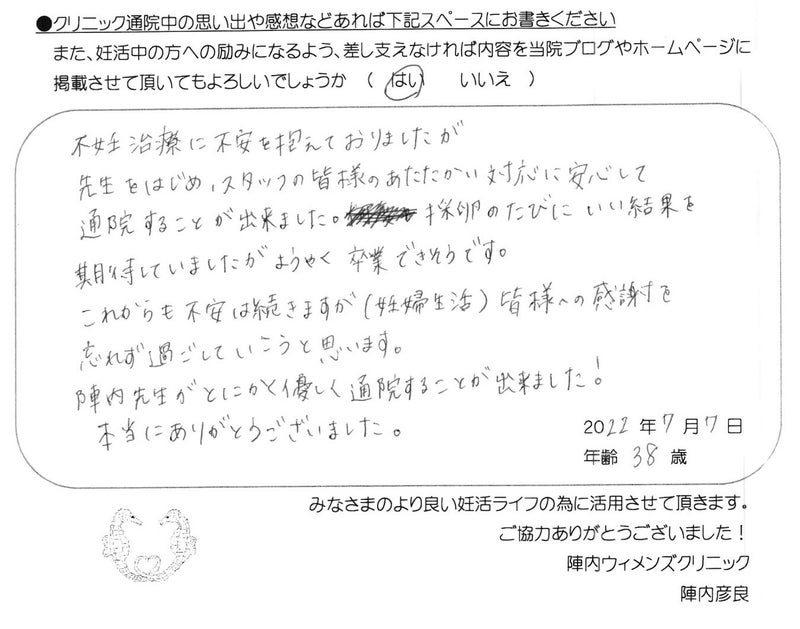 ●クリニック通院中の思い出や感想などあれば下記スペースにお書きください
また、妊活中の方への励みになるよう、差し支えなければ内容を当院ブログやホームページに
掲載させて頂いてもよろしいでしょうか （ はい いいえ ）
不妊治療に不安を抱えておりましたが
先生をはじめ、スタッフの皆様のあたたかい対応に安心して
通院することが出来ました。採卵のたびにいい結果を
期待していましたがようやく卒業できそうです。
これからも不安は続きますが（妊婦生活）皆様への感謝を
忘れず過ごしていこうと思います。
陣内先生がとにかく優しく通院することが出来ました！
本当にありがとうございました。
2022年7月7日
年齢 38 歳
みなさまのより良い妊活ライフの為に活用させて頂きます。
ご協力ありがとうございました！
陣内ウィメンズクリニック
陣内彦良